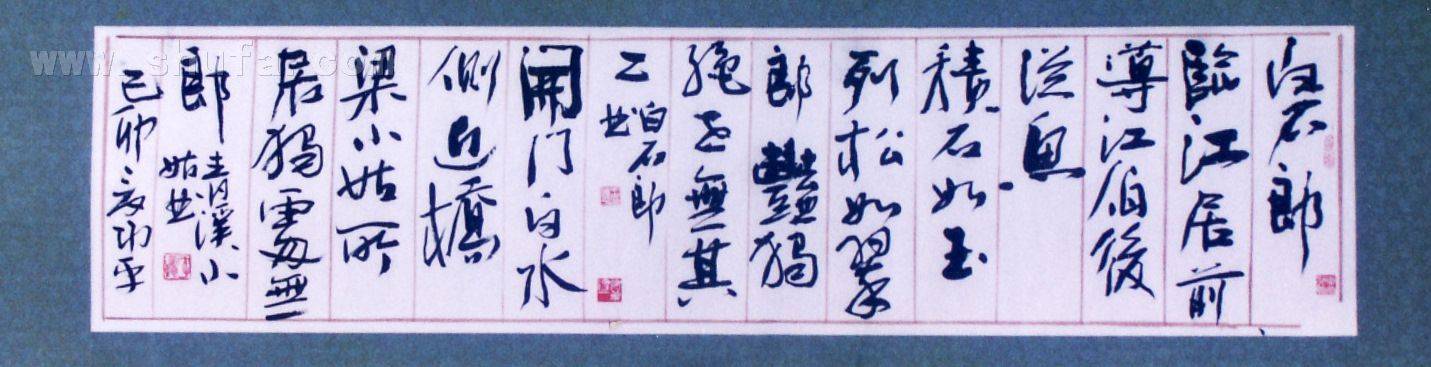 白石郎
臨江居前
導江伯後
從魚
積石如玉
列松如翠
郎豔獨
絕世無其
二
白石郎
曲
開門白水
側近橋
梁小姑所
居獨處無
郎
青溪小
姑曲
己卯